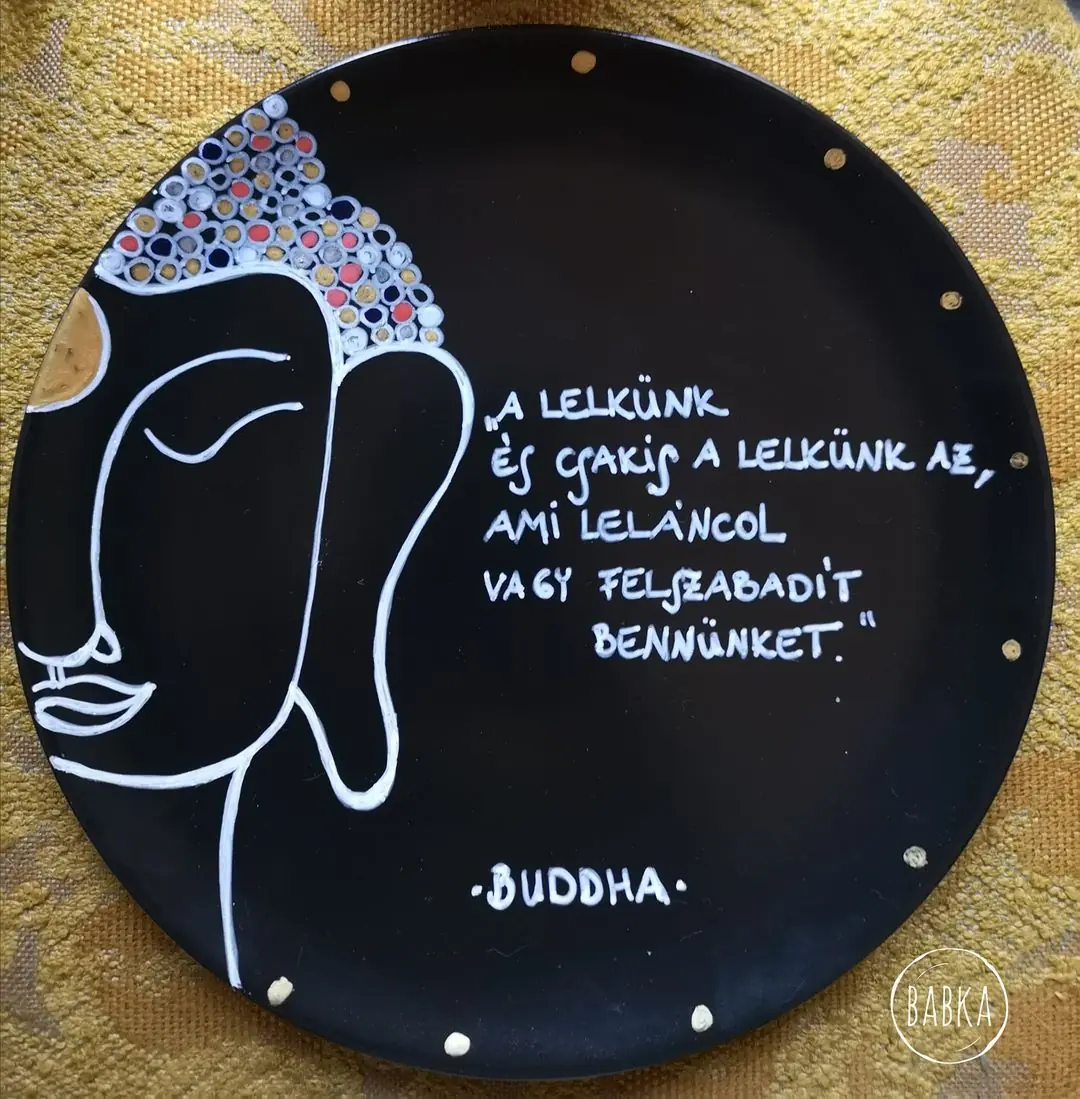 „A LELKÜNK
ÉS CSAKIS A LELKÜNK AZ,
AMI LELÁNCOL
VAGY FELSZABADÍT
BENNÜNKET."
·BUDDHA·
BABKA